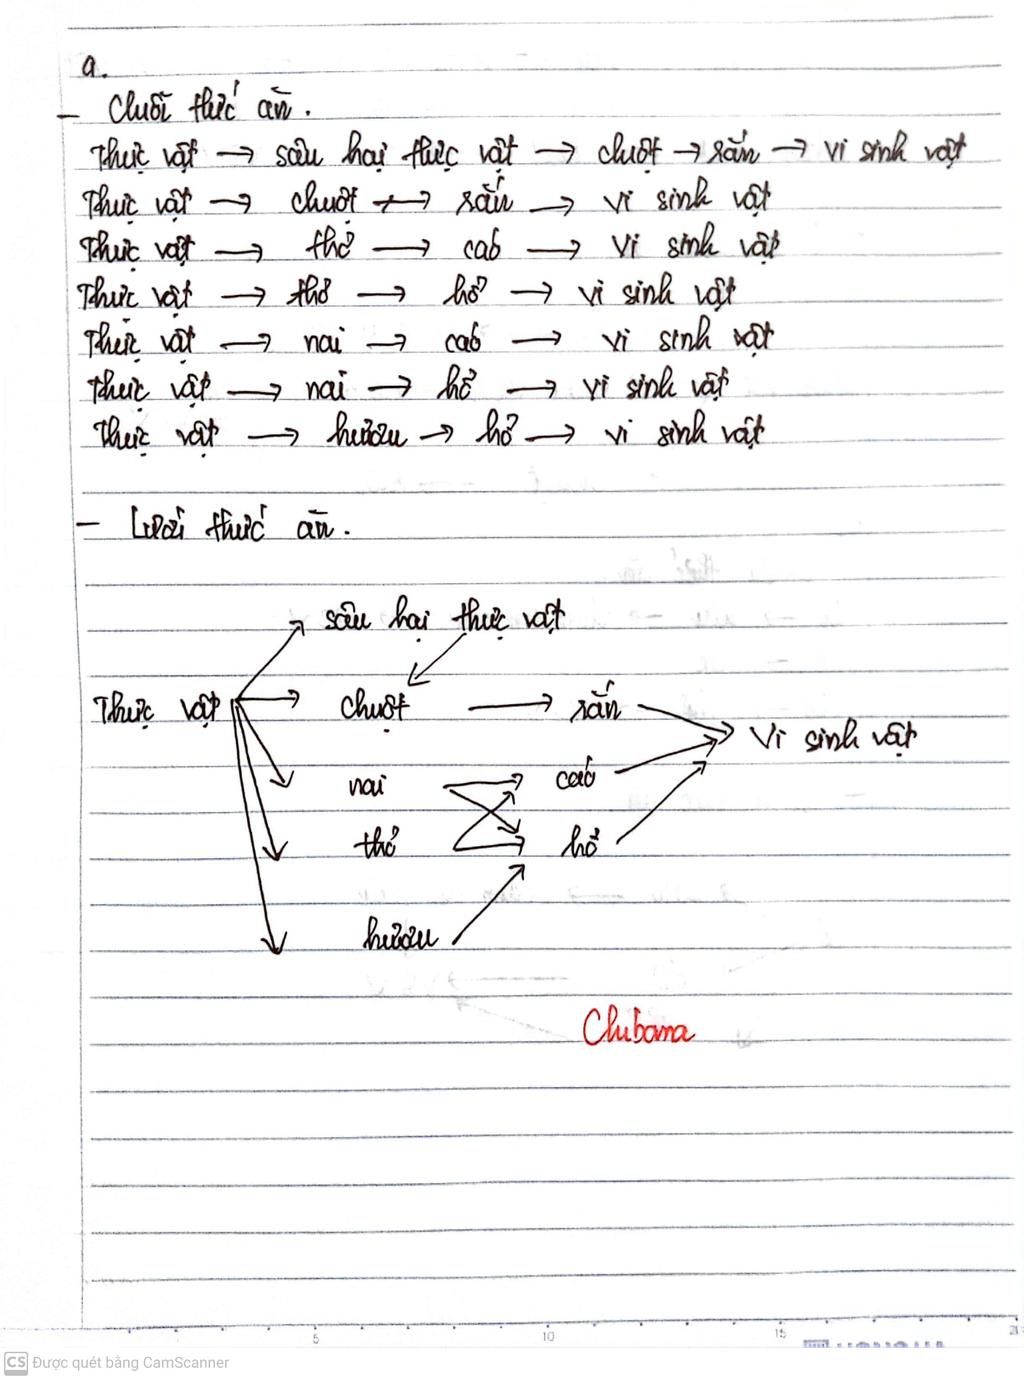 a.
- Chuỗi thức ăn.
Thực vật → sâu hại thực vật → chuột → rắn → vi sinh vật
Thực vật → chuột → rắn → vi sinh vật
Thực vật → thỏ → cáo → vi sinh vật
Thực vật → thỏ → hổ → vi sinh vật
Thực vật → nai → cáo → vi sinh vật
Thực vật → nai → hổ → vi sinh vật
Thực vật → hươu → hổ → vi sinh vật
- Lưới thức ăn.
sâu hại thực vật
Thực vật → chuột → rắn
Vi sinh vật
nai cáo
thỏ hổ
hươu
Chibana
5 10 15
CS Được quét bằng CamScanner